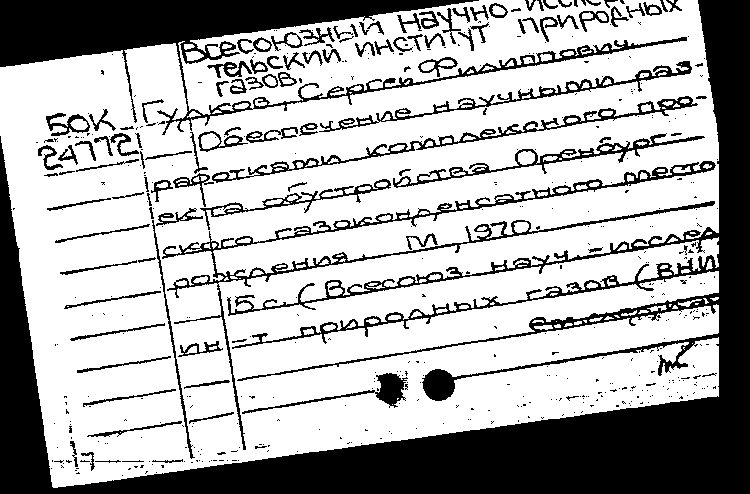 Всесоюзный научно-исслед
тельский институт природных
газов.
БОК Гудков, Сергей Филиппович.
24772 Обеспечение научными раз-
работками комплексного про-
екта обустройства Оренбург-
ского газоконденсатного место
рождения. М, 1970.
15 с. (Всесоюз. науч.-исслед
ин-т природных газов (ВНИ
см. след. кар